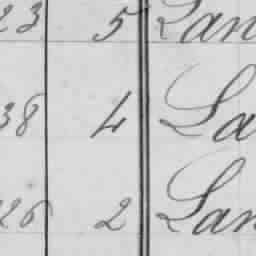 23 5 Lan
38 4 La
26 2 Lan